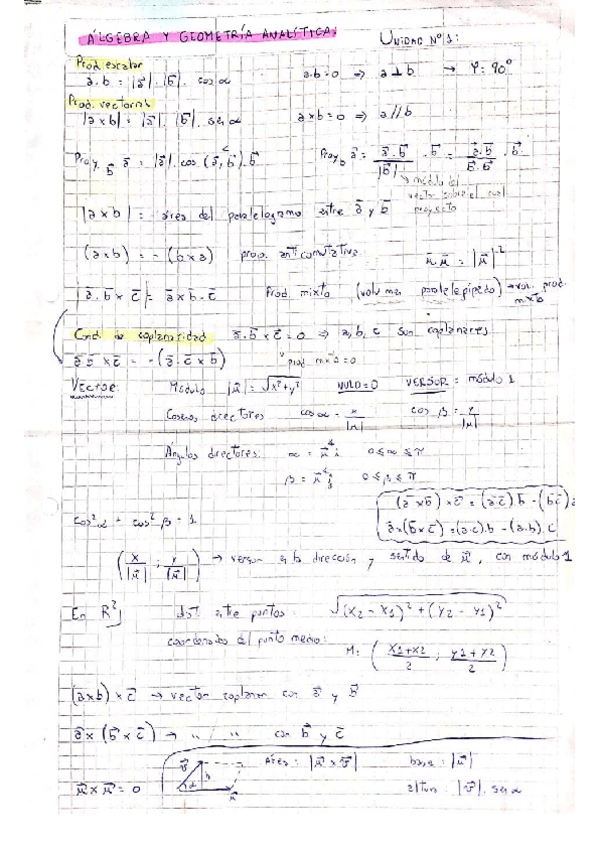 ÁLGEBRA Y GEOMETRÍA ANALÍTICA: UNIDAD Nº1:
Prod. escalar
a.b = |a⃗|.|b⃗|. cos α a.b=0 ⇒ a⊥b → φ=90°
Prod. vectorial
|axb| = |a⃗|.|b⃗|. sen α axb=0 ⇒ a//b
Proy. b⃗ a⃗ = |a⃗|.cos (a⃗,b⃗).b⃗ Proy b a⃗ = a⃗.b⃗/|b⃗| . b⃗ = a⃗.b⃗/b⃗.b⃗ . b⃗
→ módulo del
vector sobre el cual
proyecto
|axb| = área del paralelogramo entre a⃗ y b⃗
(axb) = -(bxa) prop. anticonmutativa u⃗.u⃗ = |u⃗|²
|a⃗.b⃗xc⃗| = a⃗xb⃗.c⃗ Prod. mixto (volumen paralelepípedo) → prod. mixto
Cond. de coplanaridad a⃗.b⃗xc⃗=0 ⇒ a,b,c son coplanares
a⃗.b⃗xc⃗ = -(a⃗.c⃗xb⃗) prod mixto=0
VECTOR: Módulo |u⃗| = √x²+y² NULO=0 VERSOR = módulo 1
Cosenos directores cos α = x/|u| cos β = y/|u|
Ángulos directores: α = u⃗^i 0≤α≤π
β = u⃗^j 0≤β≤π
(a⃗xb⃗)xc⃗ = (a⃗c⃗).b⃗ - (b⃗c⃗)a
cos²α + cos²β = 1 a⃗x(b⃗xc⃗) = (a.c).b - (a.b).c
(x/|u⃗| ; y/|u⃗|) → versor en la dirección y sentido de u⃗, con módulo 1
En R²} dist. entre puntos: √(x2-x1)²+(y2-y1)²
coordenadas del punto medio: M: (x1+x2/2 ; y1+y2/2)
(axb)xc⃗ → vector coplanar con a⃗ y b⃗
a⃗x(b⃗xc⃗) → " " con b⃗ y c⃗
v⃗ h α u⃗ Área: |u⃗xv⃗| base: |u⃗|
u⃗xu⃗=0 altura: |v⃗|.sen α